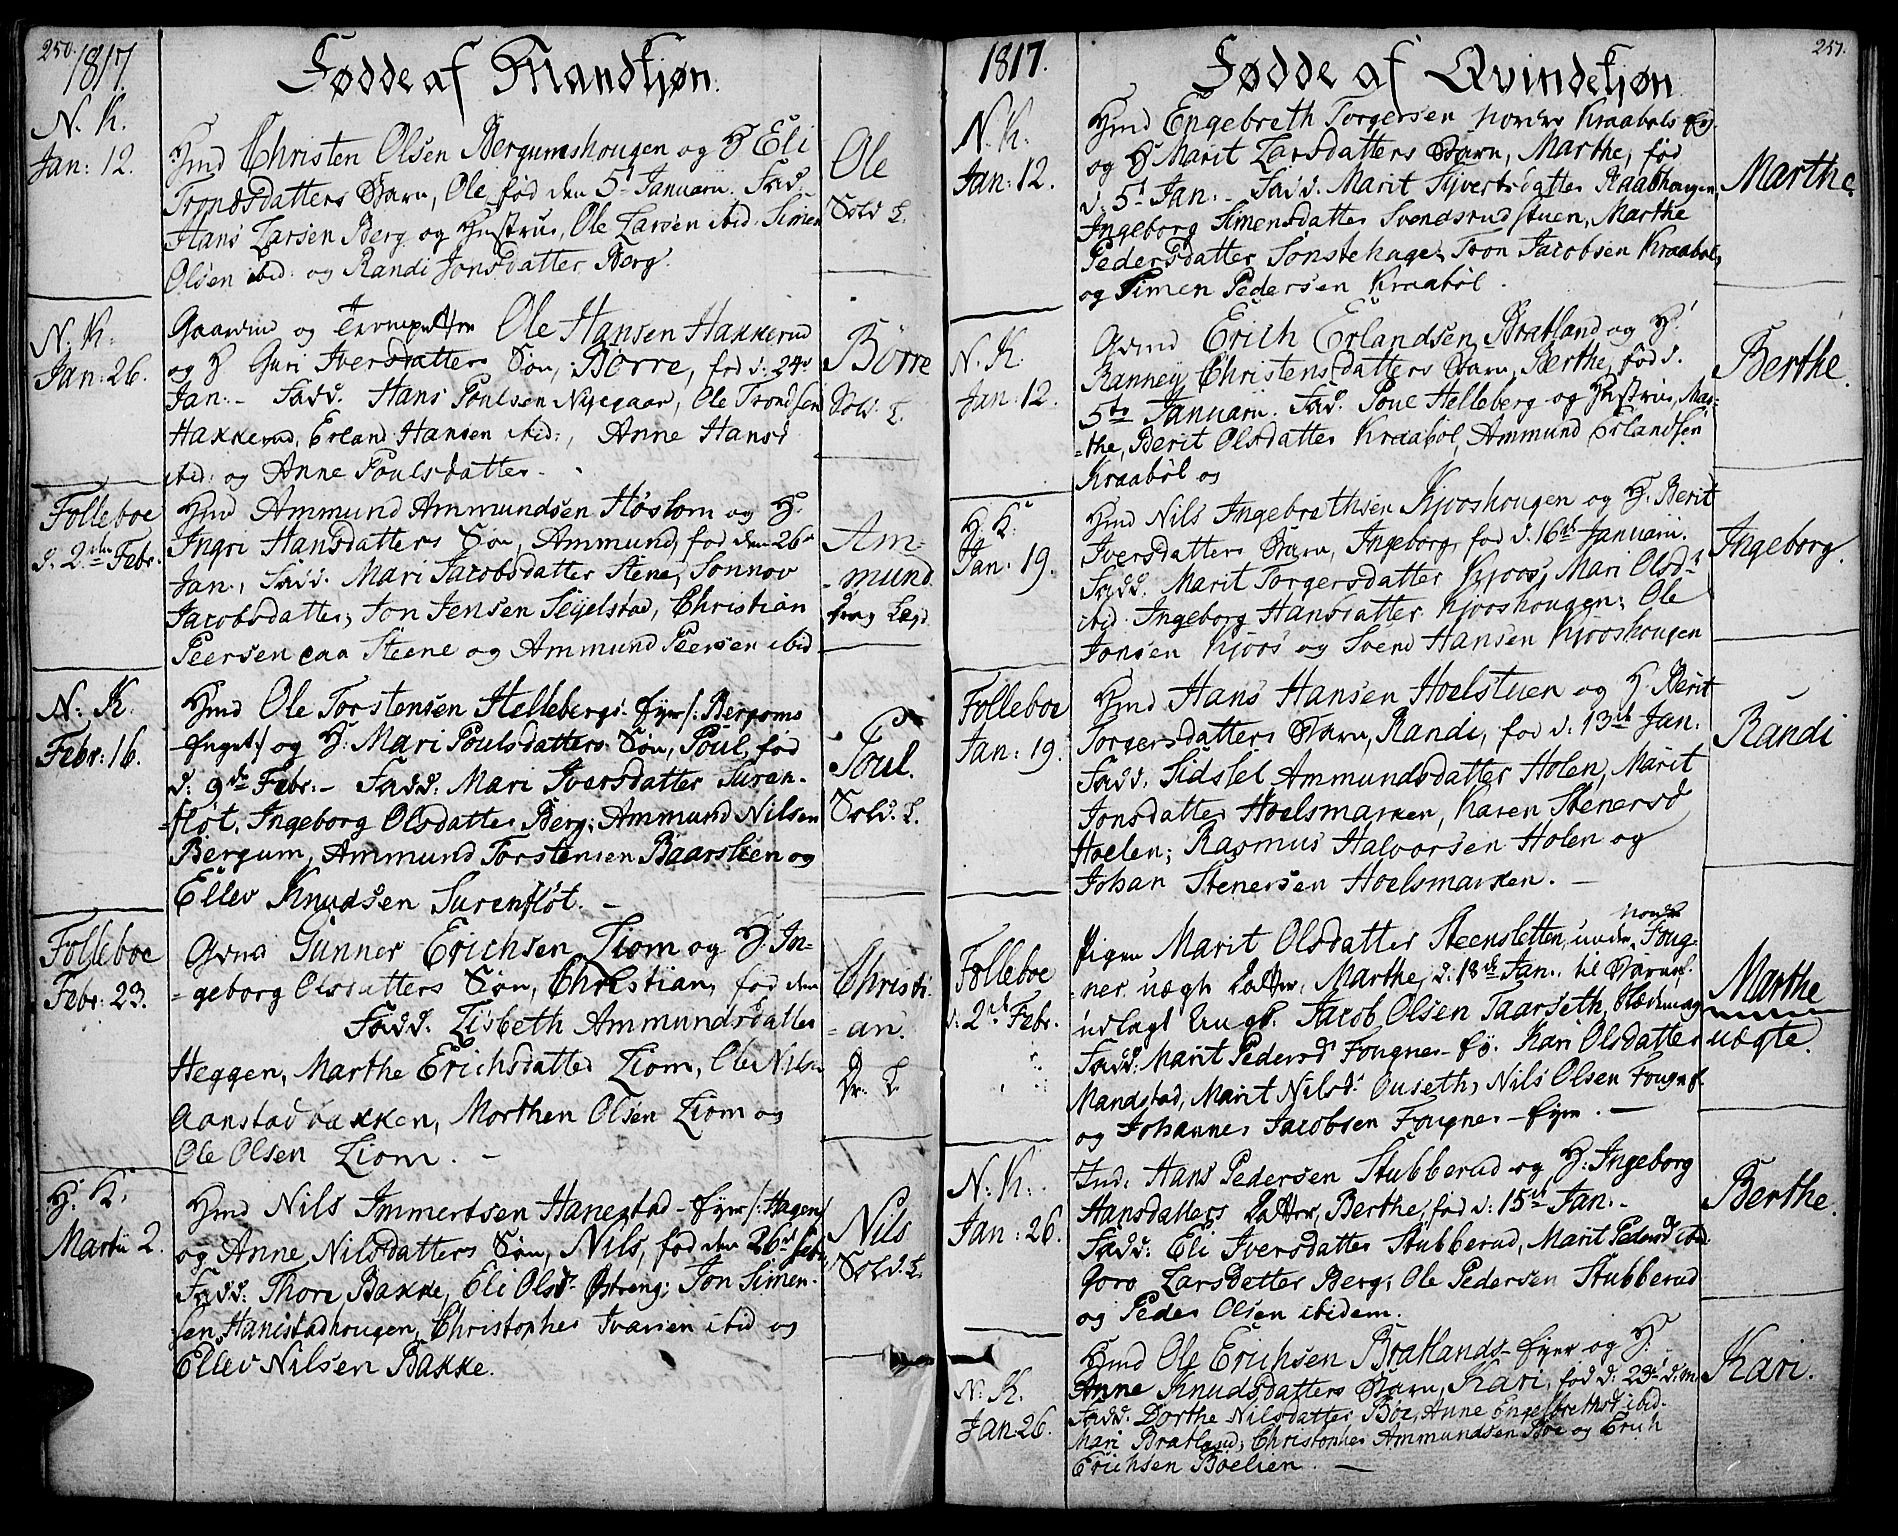 250.
1817.
Fødde af Mandkjøn.
N. K.
Jan: 12.
Hmd Christen Olsen Bergumshougen og H Eli
Trondsdatters Barn, Ole, fød den 5t Januarii. Fad.
Hans Larsen Berg og Hustrue, Ole Larsen ibid. Simen
Olsen ibid. og Randi Jonsdatter Berg.
Ole
Sold L.
N. K.
Jan: 26.
Gaardmd og Ole Hansen Hakkerud
og H Guri Iversdatters Søn, Børre, fød d: 24de
Jan: - Fadd. Hans Poulsen Nyegaar, Ole Trondsen
Hakkerud, Erland Hansen ibid:, Anne Hansd
ibid: og Anne Poulsdatter.
Børre
Sold: L.
Folleboe
d. 2den Febr.
Hmd Ammund Ammundsen Høslom og H.
Ingri Hansdatters Søn, Ammund, fød den 26de
Jan., Fadd. Mari Jacobsdatter Stene, Sønnov
Jacobsdatter, Jon Jensen Segelstad, Christian
Peersen paa Steene og Ammund Peersen ibid
Am-
-mund.
Drag Lægd
N. K.
Febr: 16.
Hmd Ole Torstensen Hellebergs-Eyer /: Bergums
Enget:/ og H: Mari Poulsdatters Søn, Poul, fød
d: 9de Febr: - Fadd: Mari Iversdatter Suren-
-fløt, Ingeborg Olsdatter Berg, Ammund Nilsen
Bergum, Ammund Torstensen Baarslien og
Ellev Knudsen Surenfløt. -
Poul.
Sold: L.
Folleboe
Febr: 23.
Gdmd Gunner Erichsen Liom og H. In-
-geborg Olsdatters Søn, Christian, fød den
Fadd: Lisbeth Ammundsdatter
Heggen, Marthe Erichsdatter Liom, Ole Nilsen
Aanstadbakken, Morthen Olsen Liom og
Ole Olsen Liom. -
Christi-
-an.
Dr. L.
H. K.
Martii 2.
Hmd Nils Immertsen Hanestad-Eyer /: Hagen/
og Anne Nilsdatters Søn, Nils, fød den 26d Febr.
Fadd: Thore Bakke, Eli Olsd. Østreng; Jon Simen-
-sen Hanestadhougen, Christopher Ivarsen ibid og
Ellev Nilsen Bakke.
Nils
Sold: L.
251.
1817.
Fødde af Qvindekjøn
N. K.
Jan: 12.
Hmd Engebreth Torgersen nordre Kraabøls Ey.
og H Marit Larsdatters Barn, Marthe, fød
d. 5t Jan. - Fadd. Marit Sjvertsdatter Raabhougen,
Ingeborg Simensdatter Svendsrudstuen, Marthe
Pedersdatter Sønstehagen, Tron Jacobsen Kraabøl,
og Simen Pedersen Kraabøl.
Marthe
N. K.
Jan: 12.
Gdmd Erich Erlandsen Bratland og H.
Ranney Christensdatters Barn, Berthe, fød d.
5te Januarii. Fad. Poul Helleberg og Hustrue, Mar-
-the, Berit Olsdatter Kraabøl, Ammund Erlandsen
Kraabøl og
Berthe.
H. K.
Jan: 19.
Hmd Nils Ingebrethsen Kjooshougen og H. Berit
Iversdatters Barn, Ingeborg, fød d. 16de Januarii.
Fadd. Marit Torgersdatter Kjoos, Mari Olsd:
ibid. Ingeborg Hansdatter Kjooshougen; Ole
Jonsen Kjoos og Svend Hansen Kjooshougen
Ingeborg.
Folleboe
Jan: 19.
Hmd Hans Hansen Hoelstuen og H. Berit
Torgersdatters Barn, Randi, fød d. 13de Jan:
Fadd: Sidsel Ammundsdatter Holen, Marit
Jonsdatter Hoelsmarken, Karen Stenersd
Hoelen; Rasmus Halvorsen Holen og
Johan Stenersen Hoelsmarken. -
Randi
Folleboe
d. 2d Febr.
Pigen Marit Olsdatter Steensletten, under nordre Foug-
-ner uægte Datter, Marthe, d. 18de Jan. til Barnef.
udlagt Ungk. Jacob Olsen Taarseth,
Fadd: Marit Pedersd Fougner-Ey. Kari Olsdatter
Mandstad, Marit Nilsd: Ouseth, Nils Olsen Fougn E.
og Johannes Jacobsen Fougner-Eyer. -
Marthe
uægte.
N. K.
Jan: 26.
Ind. Hans Pedersen Stubberud og H: Ingeborg
Hansdatters Datter, Berthe, fød d: 15de Jan: -
Fadd: Eli Iversdatter Stubberud, Marit Pedersd ibid
Goro Larsdatter Berg; Ole Pedersen Stubberud
og Peder Olsen ibidem.
Berthe.
N. K.
Jan 26.
Hmd Ole Erichsen Bratlands-Eyer og H.
Anne Knudsdatters Barn, Kari, fød d: 23d d. M.
Fadd: Dorthe Nilsdatter Bøe, Anne Engebrethsd ibid.
Mari Bratland; Christopher Ammundsen Bøe og Erich
Erichsen Boelien. -
Kari.